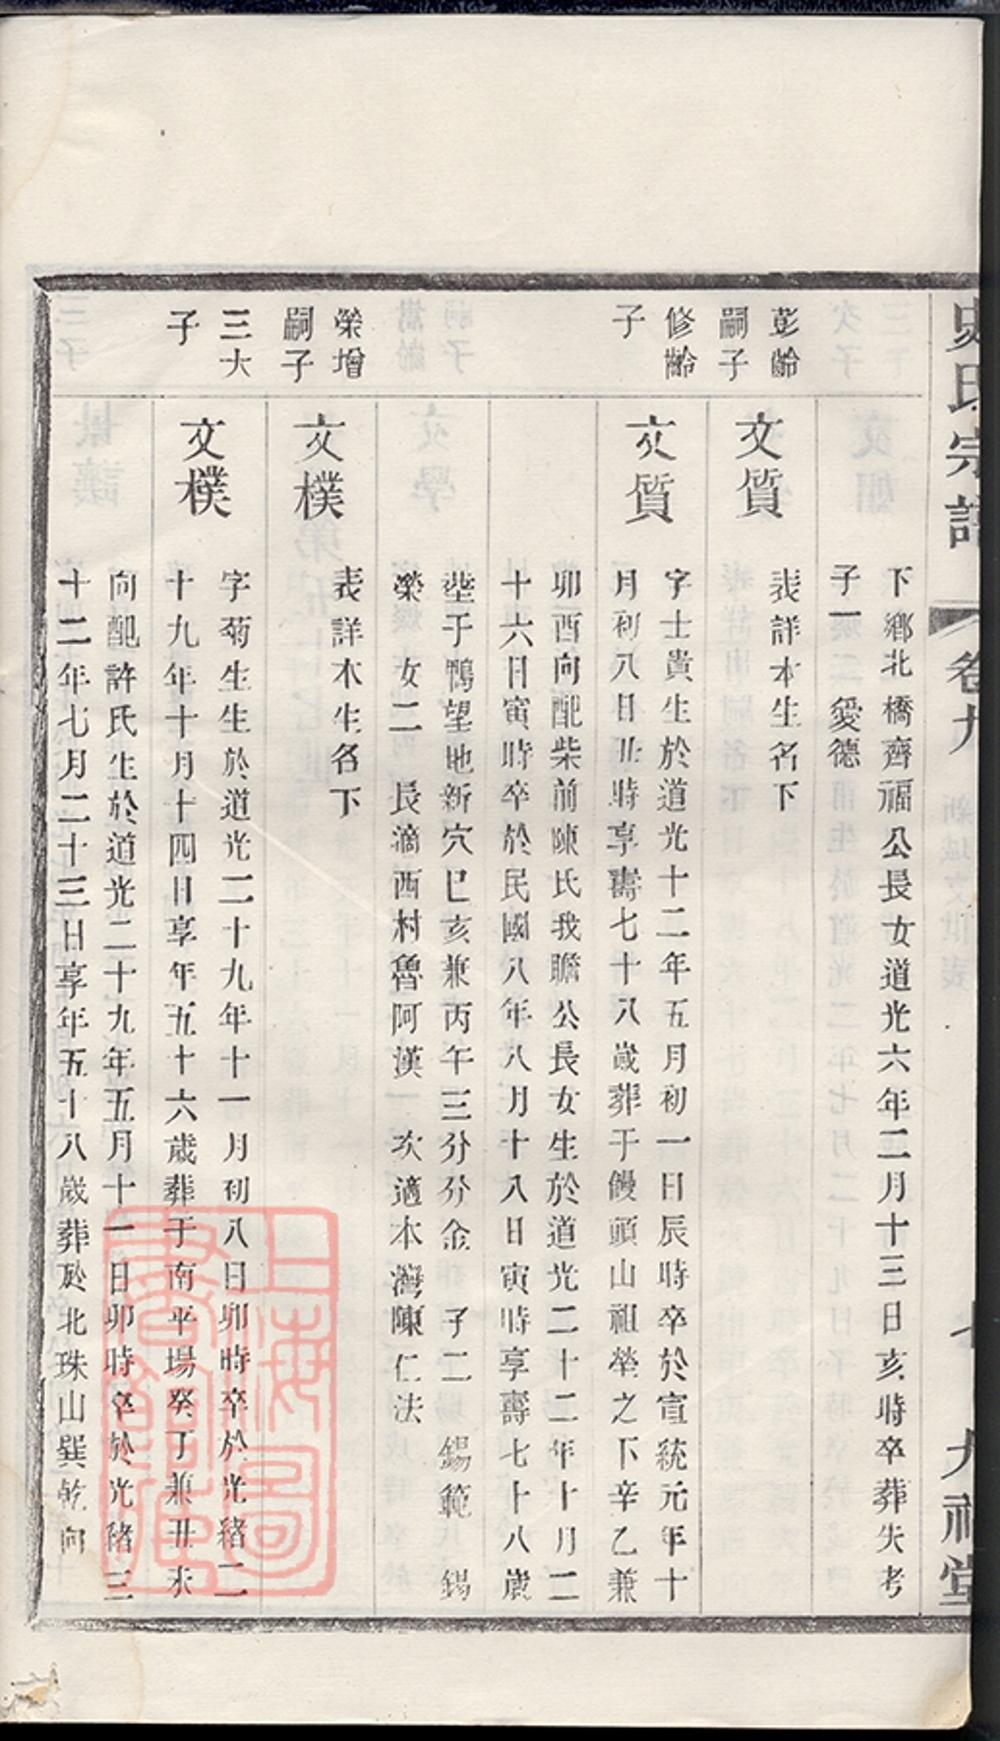 史氏宗譜
卷九
七
九福堂
下鄉北橋齊福公長女道光六年二月十三日亥時卒葬失考
子一 愛德
彭齡
嗣子
文質
表詳本生名下
修齡
子
文質
字士貴生於道光十二年五月初一日辰時卒於宣統元年十
月初八日丑時享壽七十八歲葬于饅頭山祖塋之下辛乙兼
卯酉向配柴前陳氏我瞻公長女生於道光二十二年十月二
十六日寅時卒於民國八年八月十八日寅時享壽七十八歲
塋于鴨望地新穴巳亥兼丙午三分分金 子二 錫範 錫
榮 女二 長適西村魯阿漢 次適本灣陳仁法
榮增
嗣子
文樸
表詳本生名下
三大
子
文樸
字菊生生於道光二十九年十一月初八日卯時卒於光緒二
十九年十月十四日享年五十六歲葬于南平場癸丁兼丑未
向配許氏生於道光二十九年五月十一日卯時卒於光緒三
十二年七月二十三日享年五十八歲葬於北珠山巽乾向
上海圖
書館藏